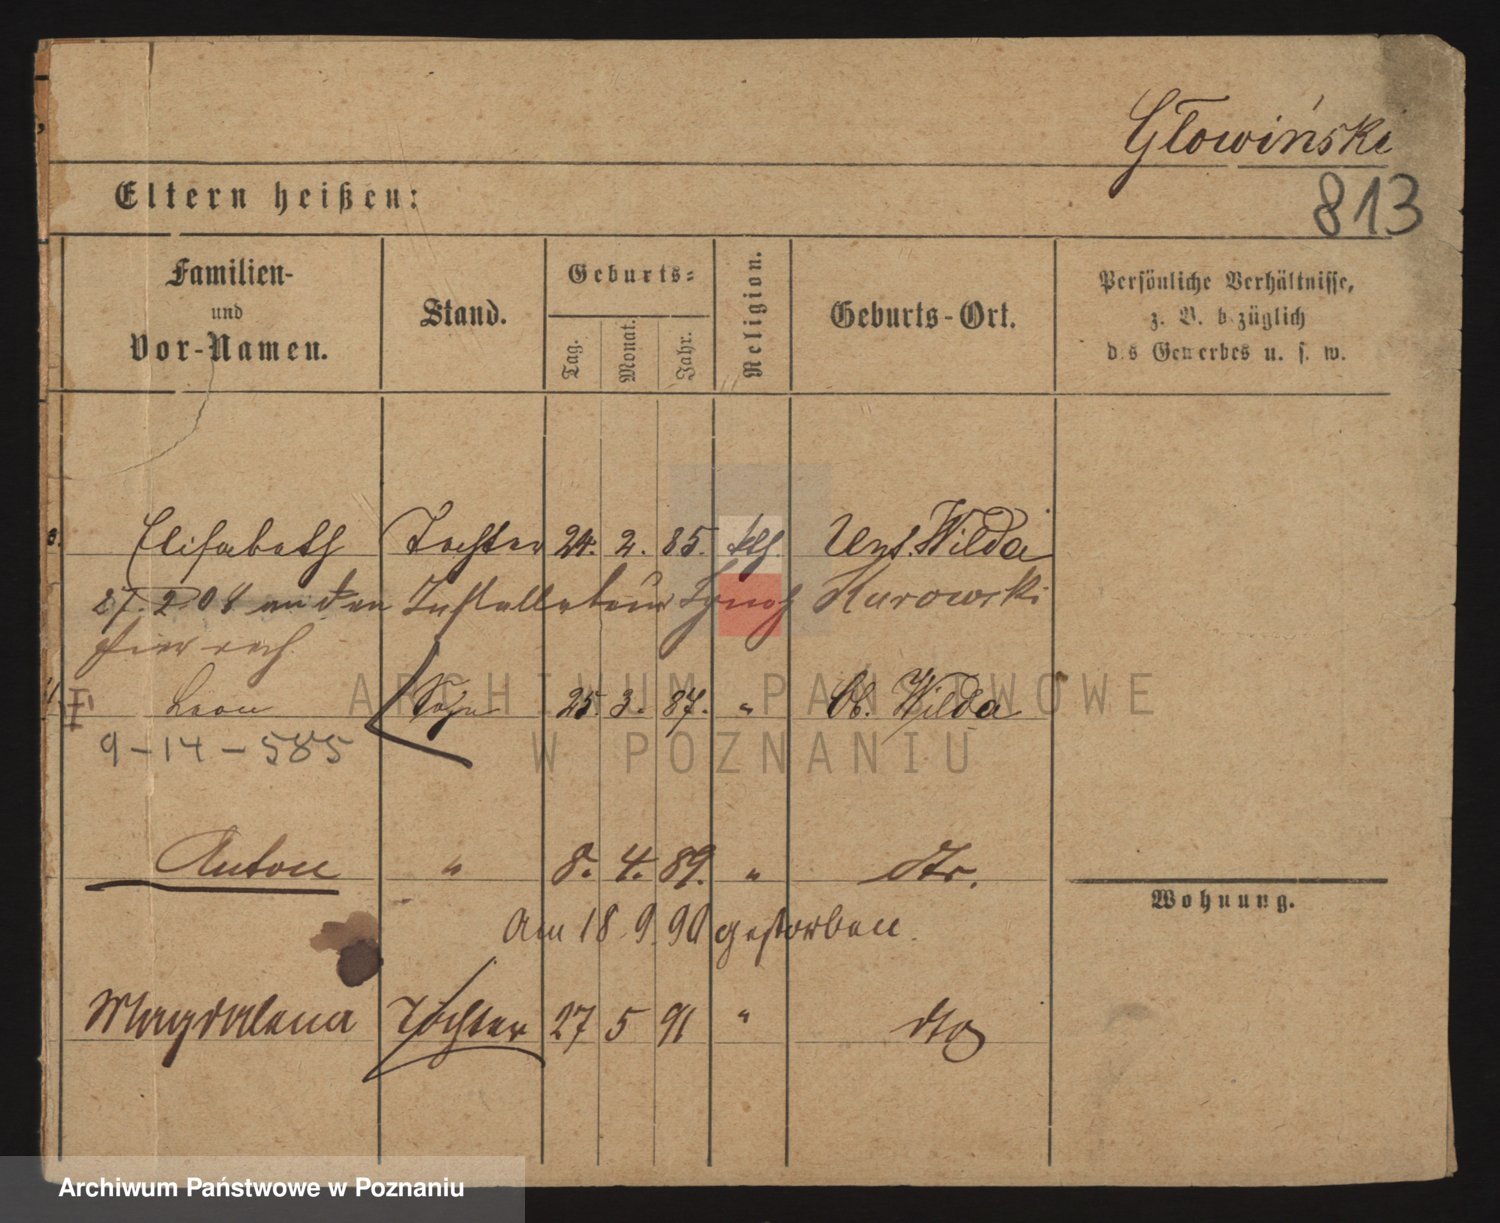 Głowiński
813
Eltern heißen:
Familien-
und
Vor-Namen.
Stand.
Geburts-
Tag.
Monat.
Jahr.
Religion.
Geburts-Ort.
Persönliche Verhältnisse,
z. B. bezüglich
des Gewerbes u. s. w.
3. Elisabeth Tochter 24. 2. 85. kth. Unt. Wilda
27. 2 08 an den Installateur Kurowski
hier verh
4. Leon Sohn 25. 3. 87. " Ob. Wilda
9-14-585
Anton " 8. 4. 89. " dto.
Wohnung.
Am 18 9. 90 gestorben.
Magdalena Tochter 27 5 91 " dto
ARCHIWUM PAŃSTWOWE
W POZNANIU
Archiwum Państwowe w Poznaniu